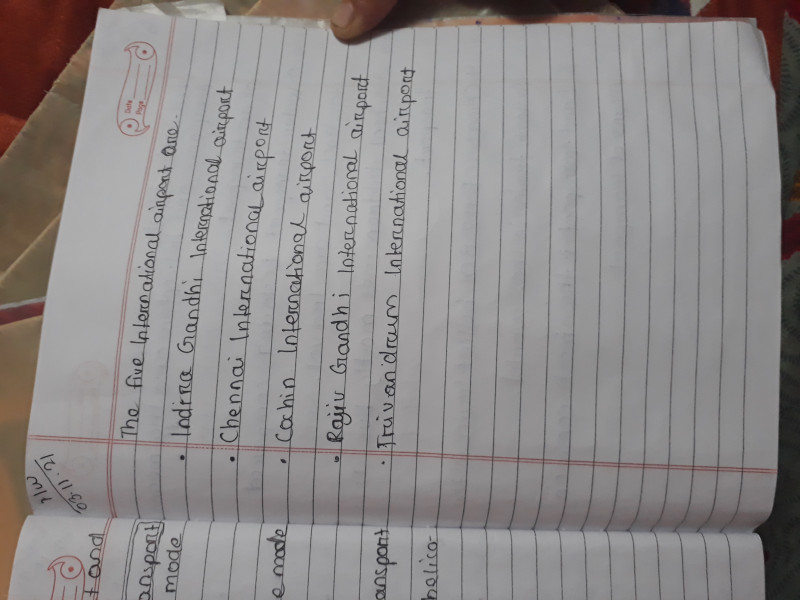 H/W
03.11.21
Date
Page
The five International airport are.
• Indira Grandhi International airport
• Chennai International airport
• Cochin International airport
• Rajiv Grandhi International airport
• Trivanidrum International airport
t and
ansport
mode
e mode
ansport
helico-